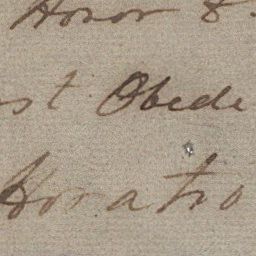 Honor &
st Obedi
Horatio